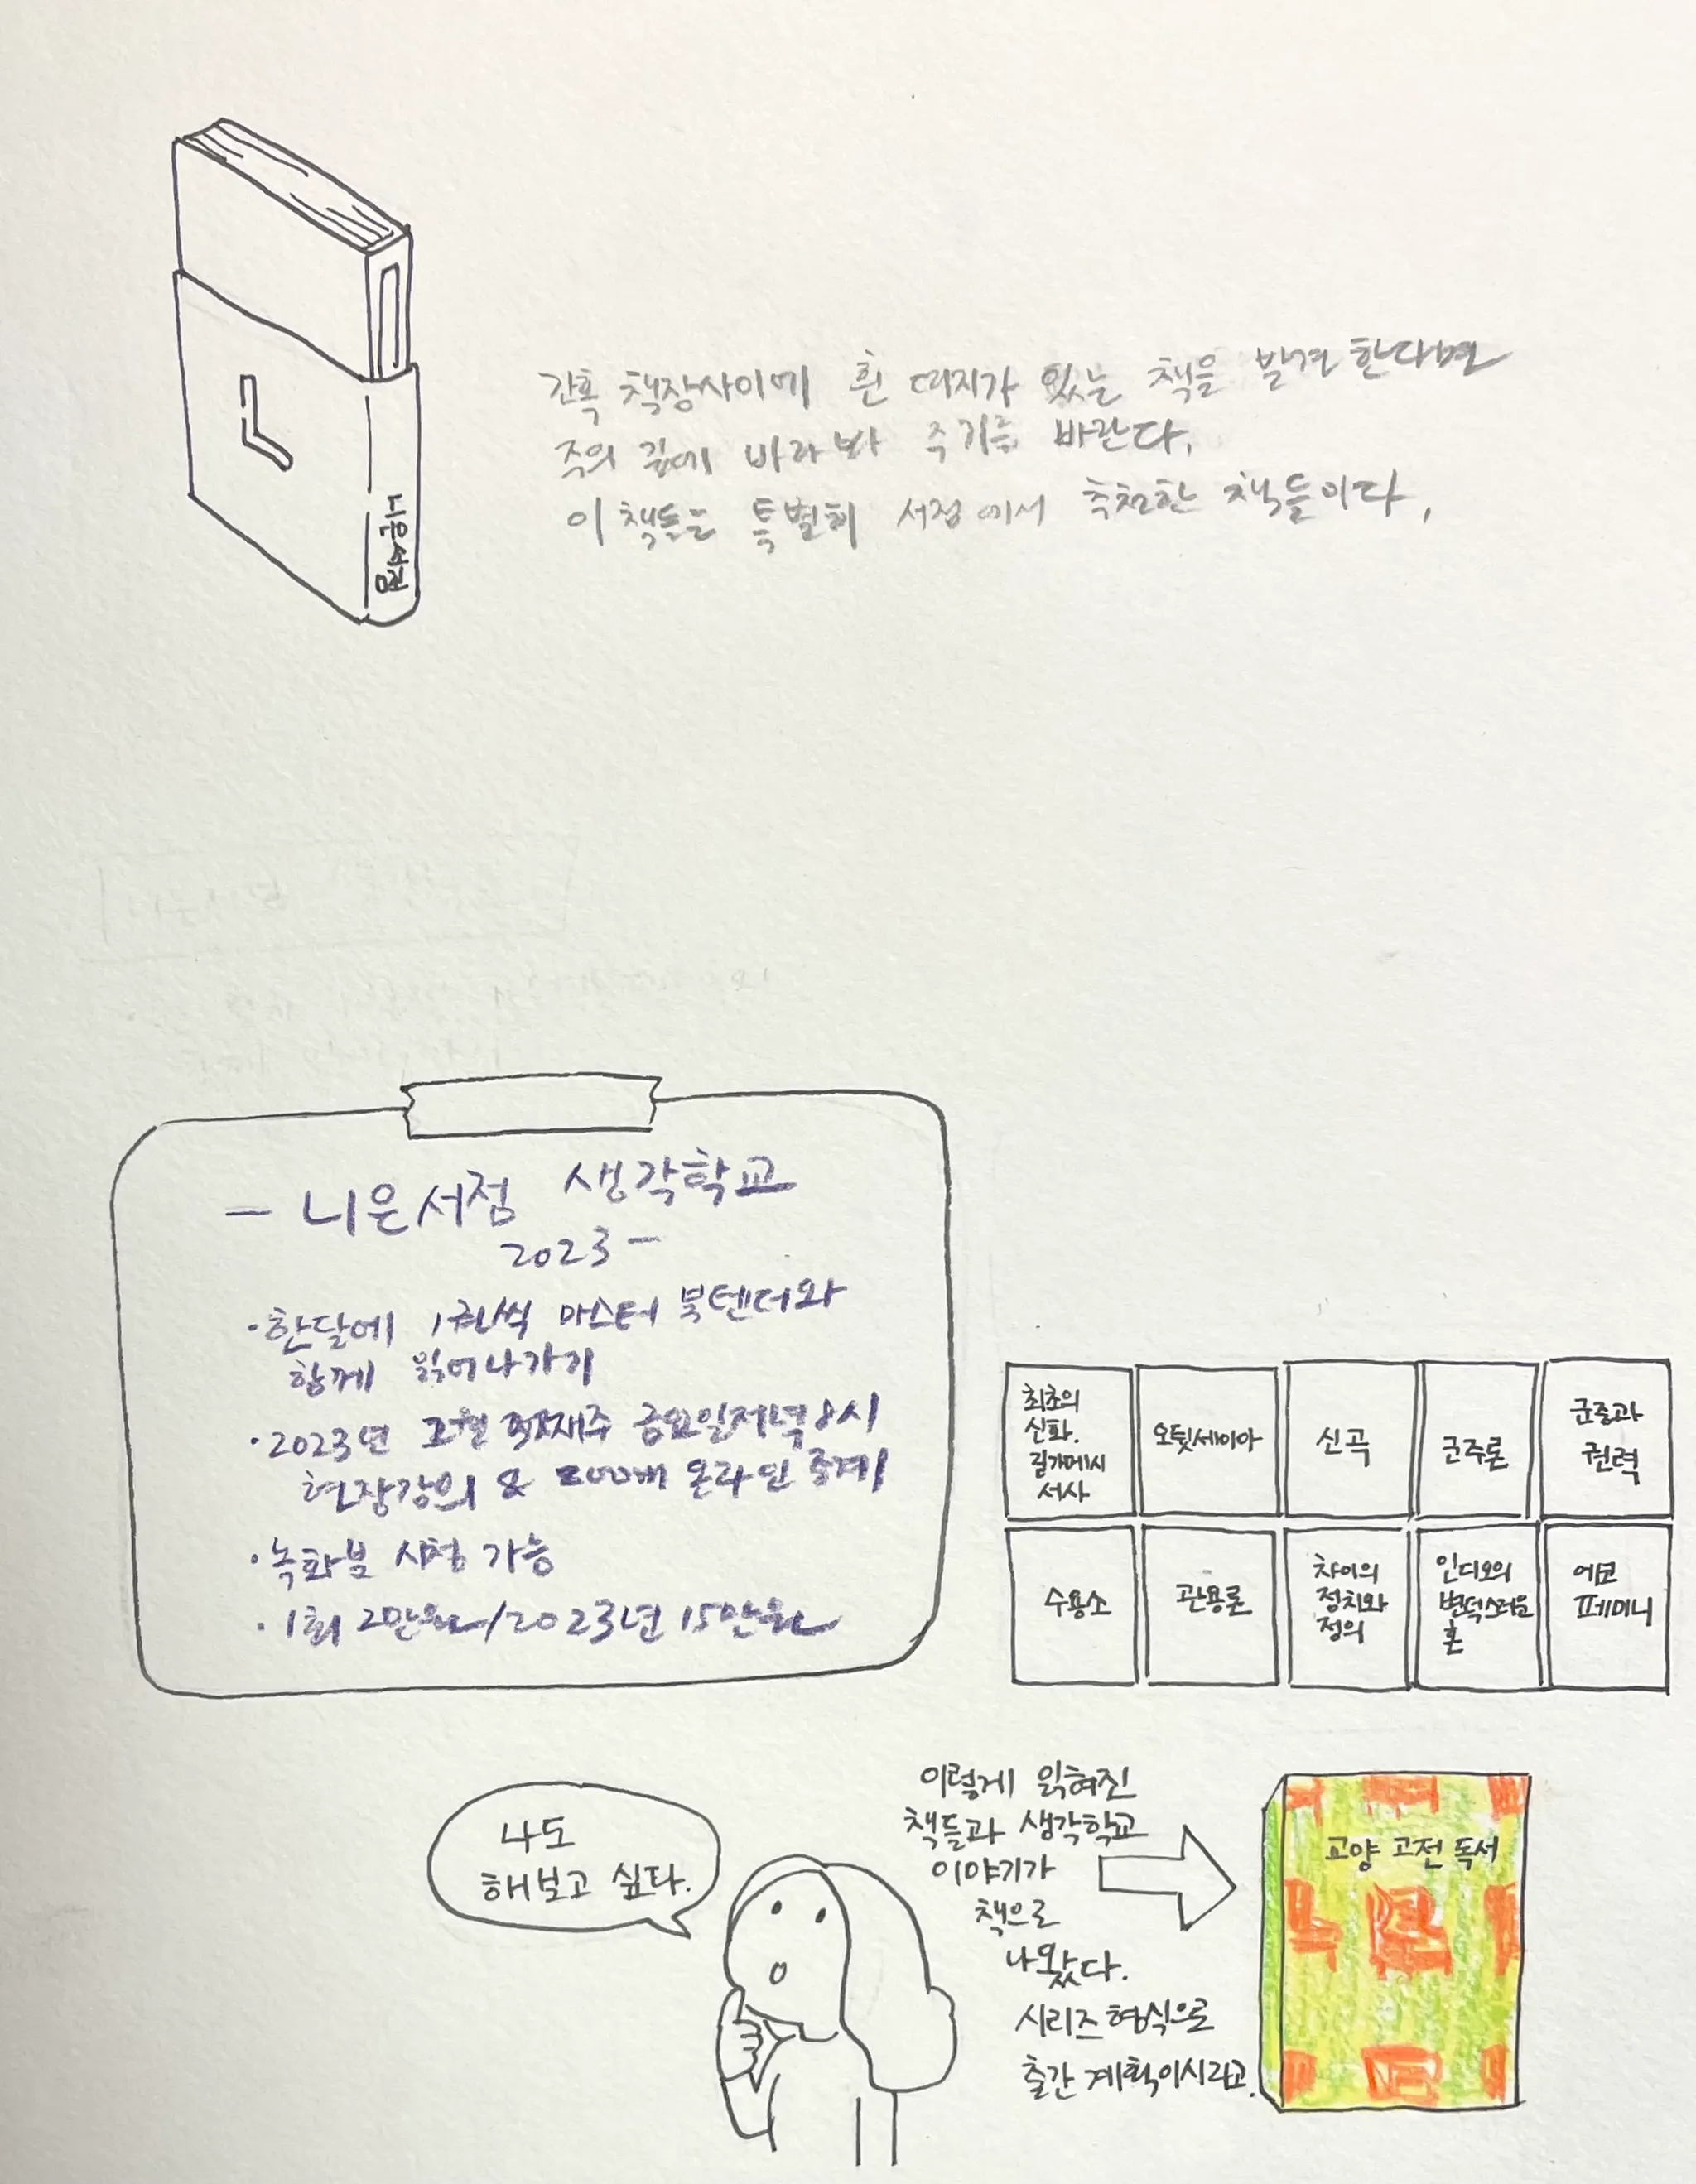 니은서점
간혹 책장사이에 흰 띠지가 있는 책을 발견한다면
주의 깊에 바라봐 주기를 바란다.
이 책들은 특별히 서점에서 추천한 책들이다.
- 니은서점 생각학교
2023 -
·한달에 1권씩 마스터 북텐더와
함께 읽어나가기
·2023년 첫째주 금요일저녁 8시
현장강의 & zoom 온라인 중계
·녹화분 시청 가능
·1회 2만원/2023년 15만원
최초의
신화.
길가메시
서사
오뒷세이아
신곡
군주론
군중과
권력
수용소
관용론
차이의
정치와
정의
인디오의
변덕스러운
혼
에코
페미니
나도
해보고 싶다.
이렇게 읽혀진
책들과 생각학교
이야기가
책으로
나왔다.
시리즈 형식으로
출간 계획이시라고.
교양 고전 독서